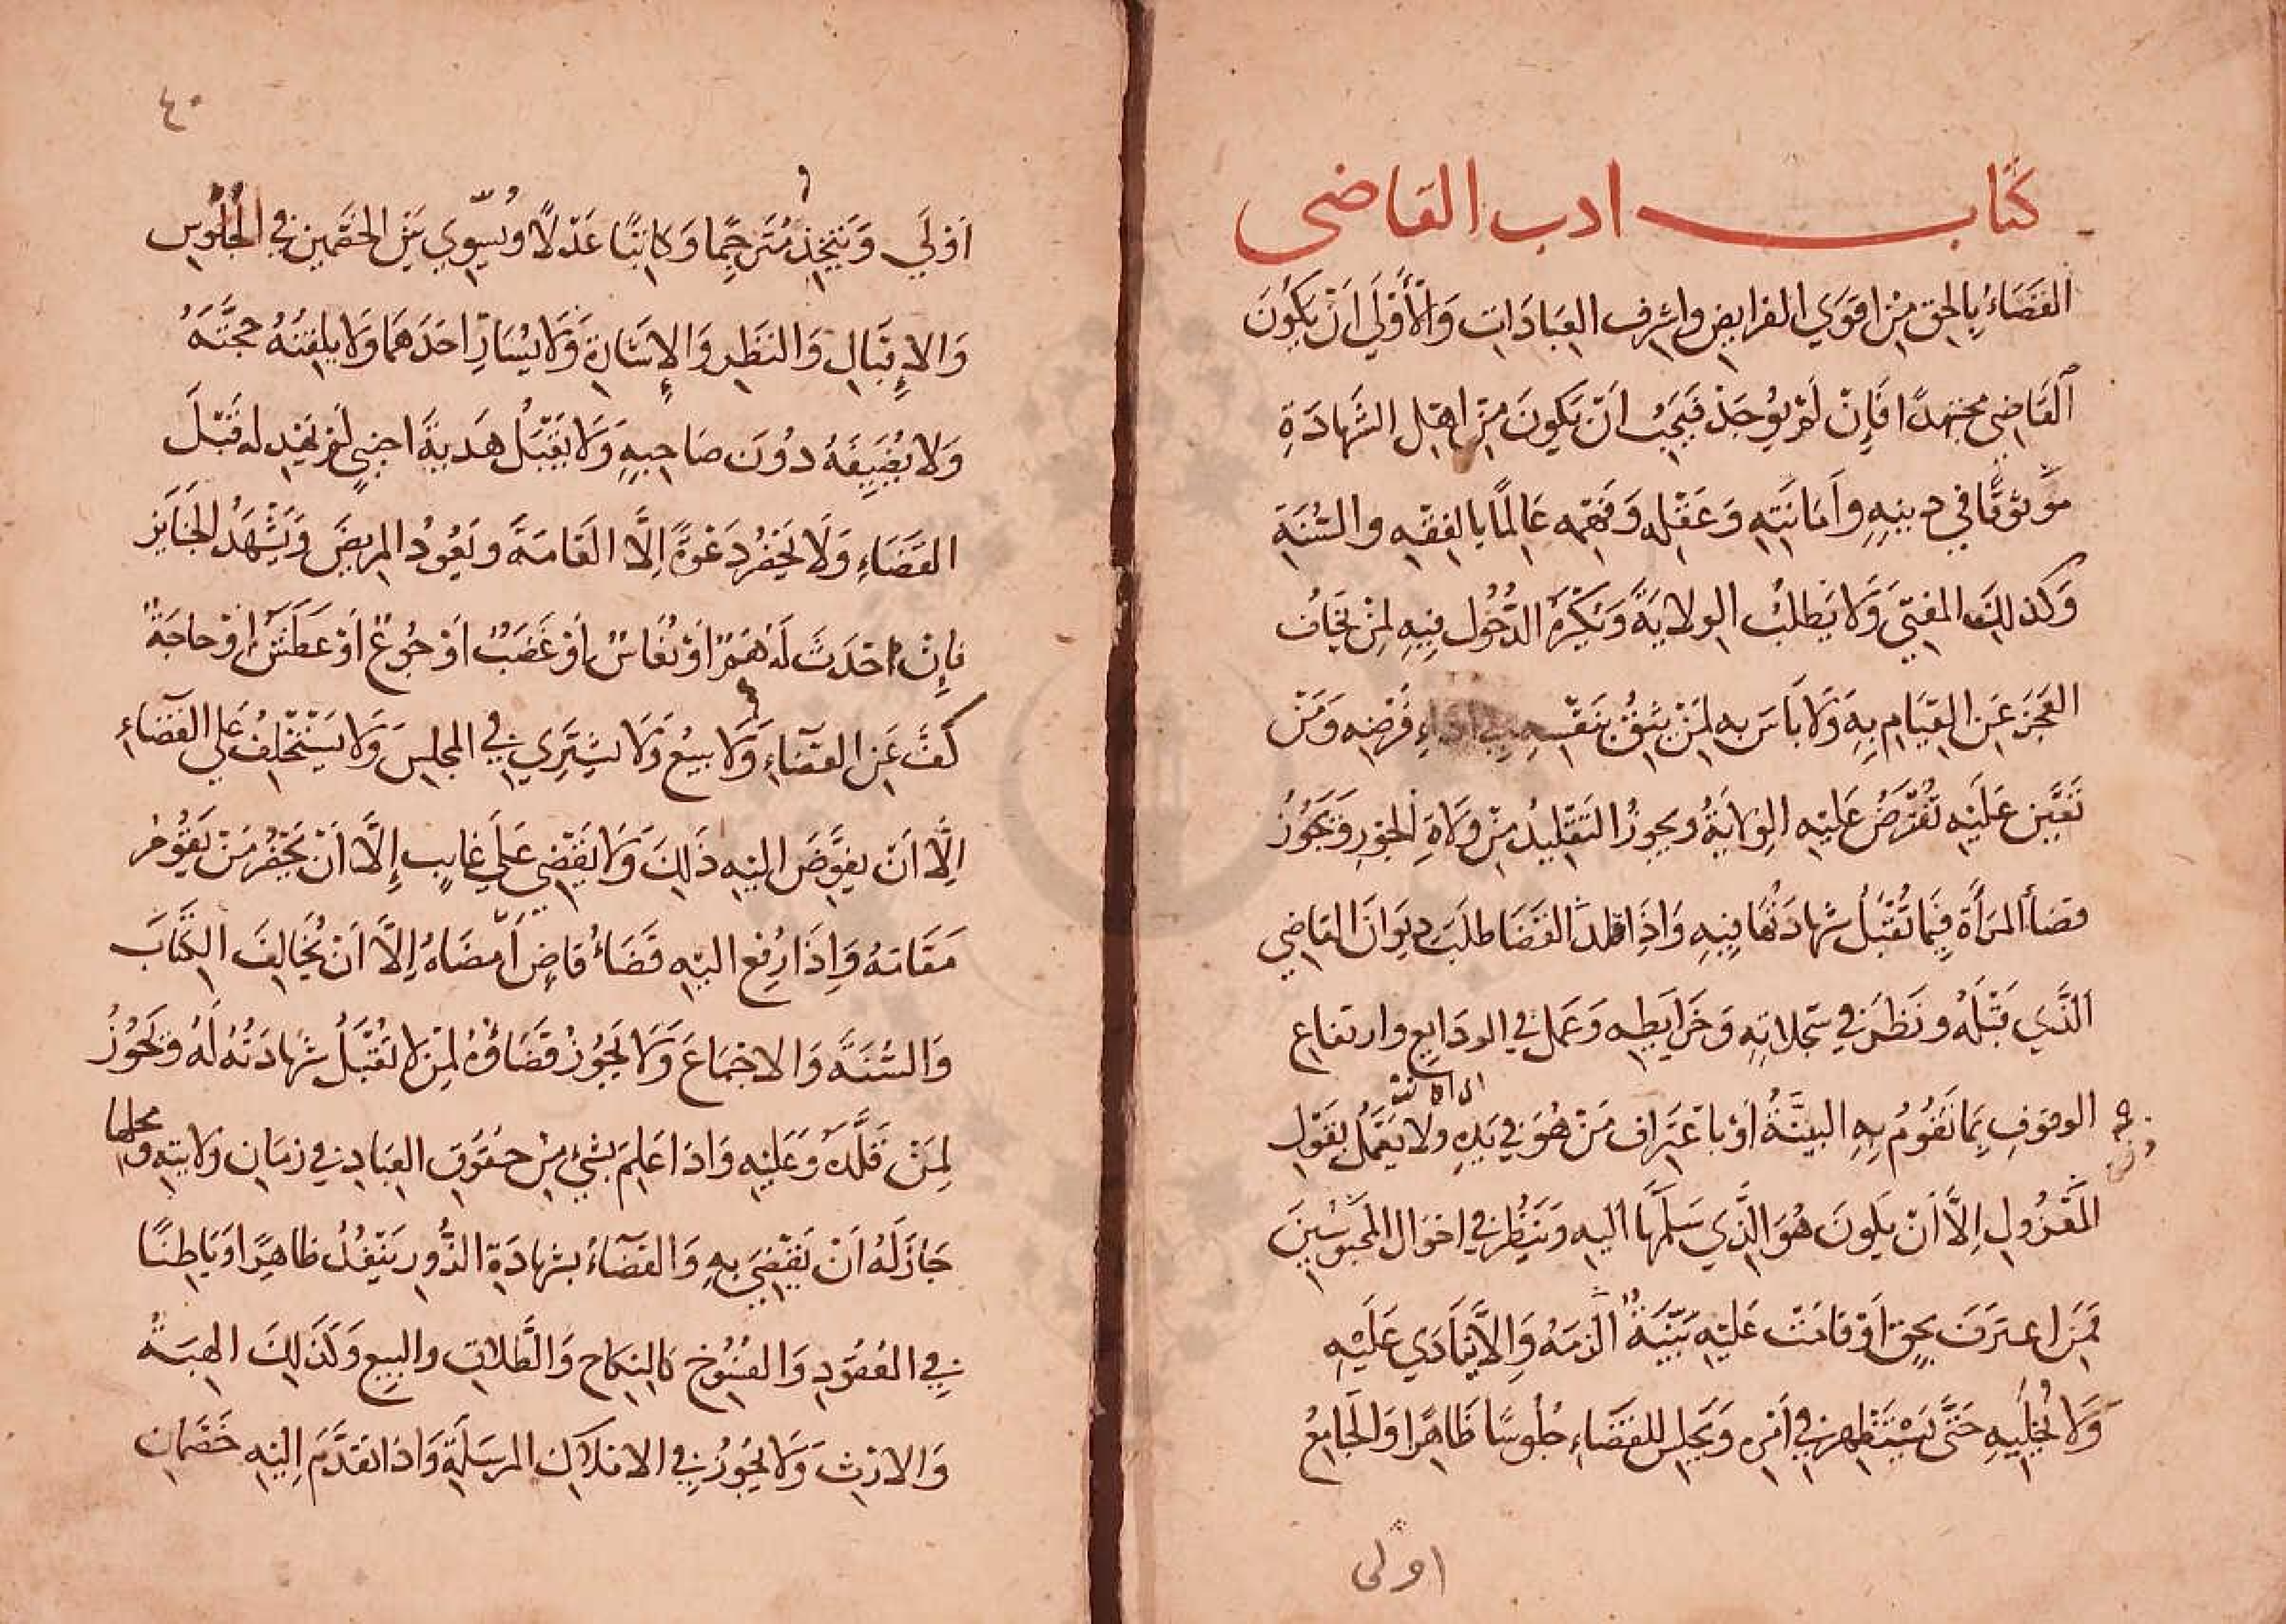 كتاب ادب القاضى
القَضَاءُ بِالحق مِنْ اقوَي الفرايض واشرف العِبَادَات وَالأَوْلَي اَنْ يَكُونَ
اَلقَاضِي مجتهدًا فَاِنْ لَمْ يُوجَدْ فَيَجِبُ اَنْ يَكُونَ مِنْ اهل الشهَادَةِ
موثوقًا في دينِهِ وأَمَانَتِهِ وَعَقْلِهِ وَفَهْمِهِ عَالِمًا بالفِقْهِ والسُّنَةِ
وَكذلِكَ المفتِي وَلَا يَطلبُ الولايَةَ وَيُكْرَهُ الدُّخُول فِيهِ لمِنْ يَخَافُ
العَجزَ عَنِ القيَامِ بِهِ وَلَا بَاسَ بِهِ لمِنْ يَثِقُ بِنَفْسِهِ فِي اَدَاءِ فَرْضِهِ وَمَنْ
تَعَيَّنَ عَلَيْهِ تُفْتَرَضُ عَليْهِ الوِلايَةُ ويجوزُ التَقْلِيدُ مِنْ وُلَاةِ الجَورِ وَيَجُوزُ
قضَاُ المَرأَة فِيمَا تُقْبَلُ شهَادَتُهَا فِيهِ وَاِذَا قلد القَضَا طلَبَ دِيوَانَ القاضِي
الَّذِي قَبْلَهُ ونَظَرَ في سَجلاتِهِ وَخَرَايطِهِ وَعَمل في الودَايعِ وارتفاعِ
الوقوفِ بِمَا تَقُومُ بِهِ البيّنَةُ اَوْ باعْتِرَاف مَنْ هُوَ في يَدِهِ ولا يَعْمَلُ بقَوْلِ
المَعْزُولِ اِلاَّ اَنْ يَكونَ هُوَ الَّذِي سَلَّمَهَا اليهِ وَيَنْظُرُ في احْوَال المَحبُوسِينَ
فَمَنِ اعترَفَ بِحقٍ اَوْ قامَتْ عَليْهِ بَيِّنَةٌ الزَمَهُ وَاِلا يُنَادِي عَلَيْهِ
وَلَا يُخَلِّيهِ حَتَّى يَسْتَظهِرَ في اَمْرِهِ وَيَجلِس للقَضَاءِ جُلُوسًا ظَاهِرًا وَالجَامِعُ
اولى
٤٠
اَوْلَي وَيَتَّخِذ مُتَرجِمًا وَكاتِبًا عَدْلًا وَيُسَوِّي بَيْنَ الخَصْمين في الجُلُوسِ
وَالاِقبَالِ وَالنَظَرِ وَالإِشَارَةِ وَلَا يُسَارّ احَدَهمَا وَلَا يلَقِنَهُ حجَّتَهُ
وَلا يُضيِفَهُ دُونَ صَاحِبِهِ وَلَا يَقْبَلُ هَدِيةَ اجْنبي لَمْ يَهْدِ له قَبْلَ
القَضَاءِ وَلَا يَحْضُرُ دَعْوَةً اِلَّا العَامَةَ وَيَعُودُ المريضَ وَيَشْهَدُ الجَنَايز
فإِنْ احْدَثَ لَهُ هَمٌ اَوْ نُعَاسٌ اَوْ غَضَبٌ اَوْ جُوعٌ اَوْ عَطَشٌ اَوْ حاجَةٌ
كَفَّ عَنِ القضَاءِ وَلَا يبيعُ وَلَا يشتَرِي في المجلِسِ وَلَا يَسْتَخْلِفُ عَلي القضَاءِ
اِلَّا اَنْ يفوَّضَ اليْهِ ذَلِكَ وَلَا يَقْضِي عَلَي غايبٍ اِلَّا اَنْ يَحْضُرَ مَنْ يَقُومُ
مَقَامَهُ وَاِذَا رُفِعَ اليْهِ قَضَاءُ قاضٍ اَمْضَاهُ اِلَّا اَنْ يُخَالِفَ الكِتَابَ
وَالسُّنَةَ وَالاجْمَاعَ وَلَا يَجُوزُ قَضَاؤُهُ لمِنْ لَا تُقْبَلُ شَهَادَتُهُ لَهُ وَيَجُوزُ
لِمَنْ قَلَّدَهُ وَعَليْهِ وَاذَا عَلِمَ بشيءٍ مِنْ حقوق العِبَادِ في زمَانِ وِلَايتِهِ ومحلها
جَازَ لَهُ اَنْ يَقْضِيَ بِهِ وَالقضَاءُ بشهَادَةِ الزُّورِ يَنْفُذُ ظاهِرًا وَبَاطِنًا
في العُقُودِ وَالفُسُوخ كالنِكَاح وَالطَّلاقِ والبيع وَكَذَلِكَ الهِبَةُ
وَالارْثِ وَلَا يَجُوزُ في الامْلاك المرسَلَةِ وَاذَا تقَدَّمَ اِليْهِ خَصْمَانِ